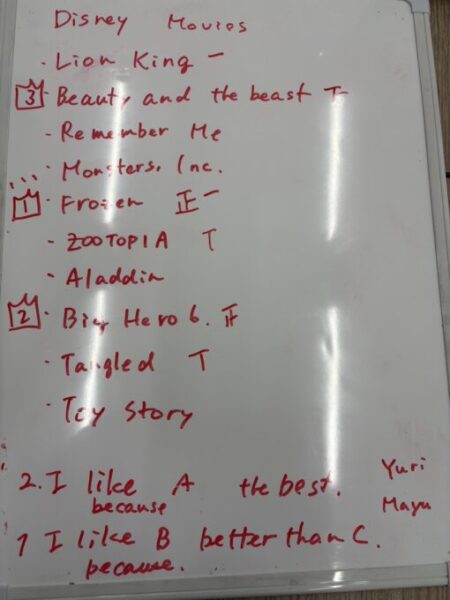 Disney Movies
· Lion King 一
3 Beauty and the beast 下
- Remember Me
- Monsters, Inc.
1 Frozen 正一
- ZOOTOPIA T
- Aladdin
2 · Big Hero 6. 正
· Tangled T
· Toy Story
2. I like A the best. Yuri
because Mayu
1 I like B better than C.
because.